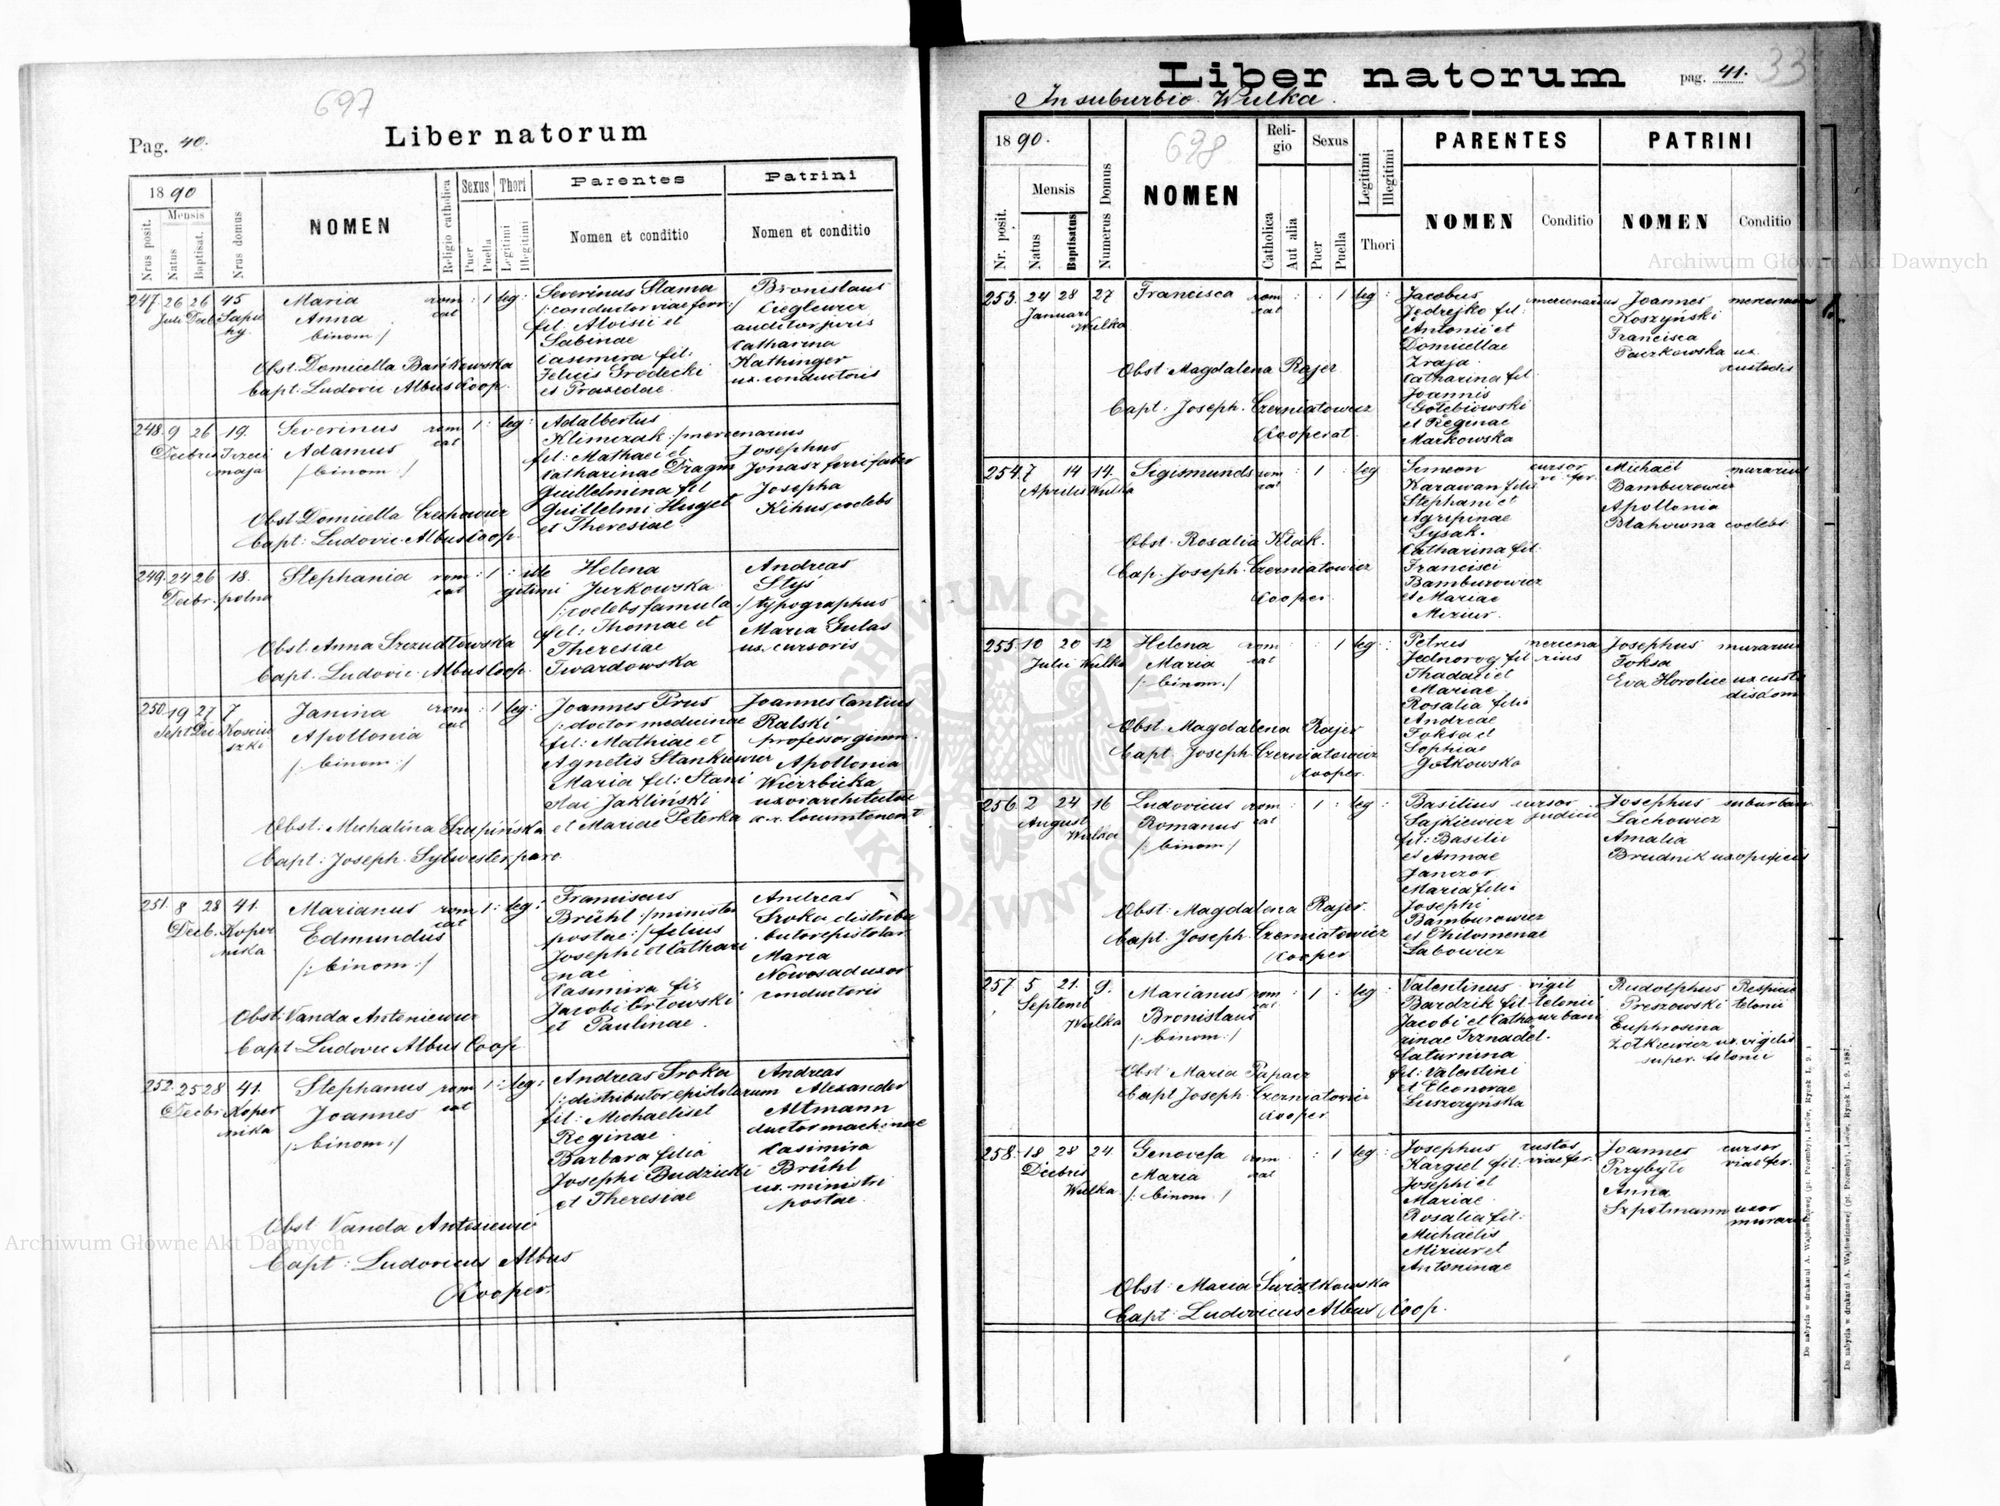 697
Pag. 40.
Liber natorum
1890
Mensis
Nrus posit.
Natus
Baptisat.
Nrus domus
NOMEN
Religio catholica
Sexus
Puer
Puella
Thori
Legitimi
Illegitimi
Parentes
Nomen et conditio
Patrini
Nomen et conditio
247. 26 26 45 Maria rom : 1 leg: Severinus Slama Bronislaus
Juli Decb. Sapie Anna cat /:conductor viae ferr:/ Cieglewicz
hy. binom:/ fil: Aloisii et auditor juris
Sabinae Catharina
Obst: Domicella Bańkowska Casimira fil: Kathinger
Capt: Ludovic Albus Coop. Felicis Grodecki ux. conductoris
et Praxedae.
248. 9 26 19. Severinus rom 1 : leg: Adalbertus
Decbris Trzeci Adamus cat Klimczak :/mercenarius
maja /:binom:/ fil: Mathaei et Josephus
Catharinae Dragan Jonasz ferri faber
Guillelmina fil Josepha
Obst: Domicella Czechowicz Guillelmi Huget Kihus, coelebs
Capt: Ludovic. Albus Coop. et Theresiae
249. 24 26 18. Stephania rom : 1 : ille Helena Andreas
Decbr. polna cat gitimi Jurkowska Styś
/:coelebs famula:/ typographus
fil: Thomae et Maria Gulas
Obst: Anna Szczudłowska Theresiae ux. cursoris
Capt: Ludovic Albus Coop. Twardowska
250. 19 27 7 Janina rom : 1 leg: Joannes Prus Joannes Cantius
Sept. Dec. Kosciu Apollonia cat /:doctor medicinae Ralski
szki /:binom:/ fil: Mathiae et professor gimn.
Agnetis Stankiewicz Apollonia
Maria fil: Stani Wierzbicka
slai Jakliński ux. architectae
Obst: Michalina Szupińska et Mariae Peterka c. r. locumtenent
Capt: Joseph. Sylwester, paro.
251. 8 28 41. Marianus rom 1: leg: Franciscus Andreas
Decb. Koper Edmundus cat Brühl :/minister Sroka distribu
nika /:binom:/ postae:/ filius butor epistolar
Josephi et Cathari Maria
nae Nowosad uxor
Casimira fil conductoris
Obst: Vanda Antoniewicz Jacobi Orłowski
Capt Ludovic Albus Coop. et Paulinae.
252. 25 28 41. Stephanus rom 1: leg: Andreas Sroka Andreas
Decbr Koper Joannes cat /:distributor epistolarum Alexander
nika /:binom:/ fil: Michaelis et Altmann
Reginae ductor machinae
Barbara filia Casimira
Josephi Budzicki Brühl
et Theresiae ux. ministri
postae.
Obst Vanda Antoniewicz
Capt: Ludovicus Albus
Cooper.
Liber natorum
pag. 41.
33
In suburbio Wulka.
1890.
698
Nr. posit.
Mensis
Natus
Baptisatus
Numerus Domus
NOMEN
Religio
Catholica
Aut alia
Sexus
Puer
Puella
Legitimi
Illegitimi
Thori
PARENTES
NOMEN
Conditio
PATRINI
NOMEN
Conditio
253. 24 28 27 Francisca rom : : 1 leg: Jacobus mercenarius Joannes mercenarius
Januari Wulka cat Jedrejko fil: Koszyński
Antonii et Francisca
Domicellae Paczkowska ux.
Obst: Magdalena Rajer Zraja custodis
Catharina fil:
Capt: Joseph. Czerniatowicz Joannis
Cooperat. Gołebiowski
et Reginae
Markowska
254. 7 14 14. Sigismundus rom : 1 : leg Simeon cursor Michaël murarius
Aprilis Wulka cat Karawan filii vi fer. Bamburowicz
Stephani et Apollonia
Agripinae Blahowna coelebs
Obst: Rosalia Kłak. Sysak.
Catharina fil:
Cap. Joseph. Czerniatowicz Francisci
Cooper. Bamburowicz
et Mariae
Miziur.
255. 10 20 12 Helena rom : : 1 leg: Petrus mercena Josephus murarius
Julii Wulka Maria cat Jednorog fil rius Foksa
/:binom:/ Thadaei et Eva Horolec ux custo
Mariae dis dom
Rosalia filii
Obst: Magdalena Rajer Andreae
Capt: Joseph Czerniatowicz Foksa et
Cooper. Sophiae
Gotkowska
256. 2 24 16 Ludovicus rom : 1 : leg: Basilius cursor Josephus suburban
August Wulka Romanus cat Sajkiewicz judicii Lachowicz
/:binom:/ fil: Basilii Amalia
et Annae Brudnik ux. opificis
Janczor
Maria filii
Obst: Magdalena Rajer. Josephi
Bamburowicz
Capt: Joseph. Czerniatowicz et Philomenae
Cooper Labowicz
257. 5 21. 9. Marianus rom : 1 : leg: Valentinus vigil Rudolphus Respici
Septemb Wulka Bronislaus cat Bardzik fil: telonii Preszowski telonii
/:binom:/ Jacobi et Catha urbani Euphrosina
rinae Trznadel. Żołkiewicz ux. vigilis
Obst: Maria Papacz Saturnina super. telonii
Capt Joseph. Czerniatowicz fil: Valentini
Cooper et Eleonorae
Luszczyńska
258. 18 28 24. Genovefa rom : : 1 leg: Josephus custos Joannes cursor
Decbris Maria cat Kargiel fil: viae fer. Przybyło viae fer.
Wulka. /:binom:/ Josephi et Anna
Mariae Szpetmann uxor
Rosalia fil: murarii
Michaelis
Miziur et
Antoninae
Obst: Maria Swiątkowska
Capt: Ludovicus Albus Coop.
Do nabycia w drukarni A. Wajdowiczowej (pt. Poremby), Lwów, Rynek L. 9. 1887.
Archiwum Główne Akt Dawnych
Archiwum Główne Akt Dawnych